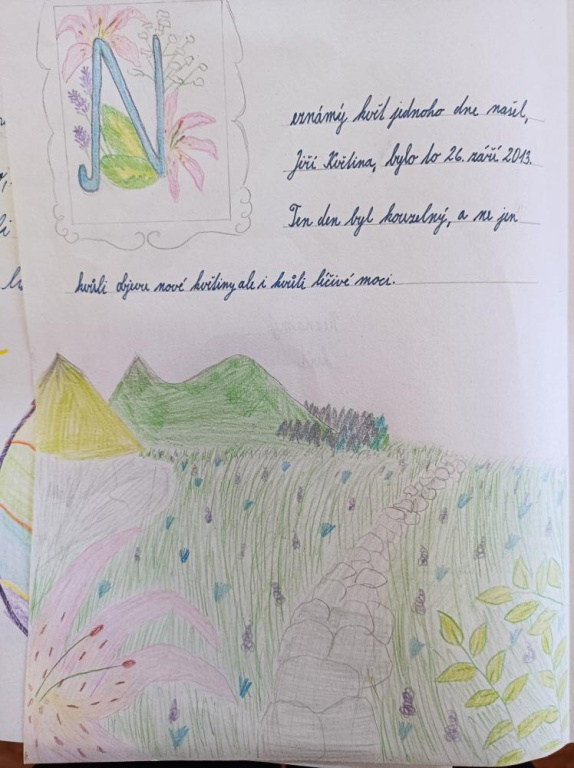 N
eznámý květ jednoho dne našel,
Jiří Květina, bylo to 26. září 2013.
Ten den byl kouzelný, a ne jen
kvůli objevu nové květiny ale i kvůli léčivé moci.